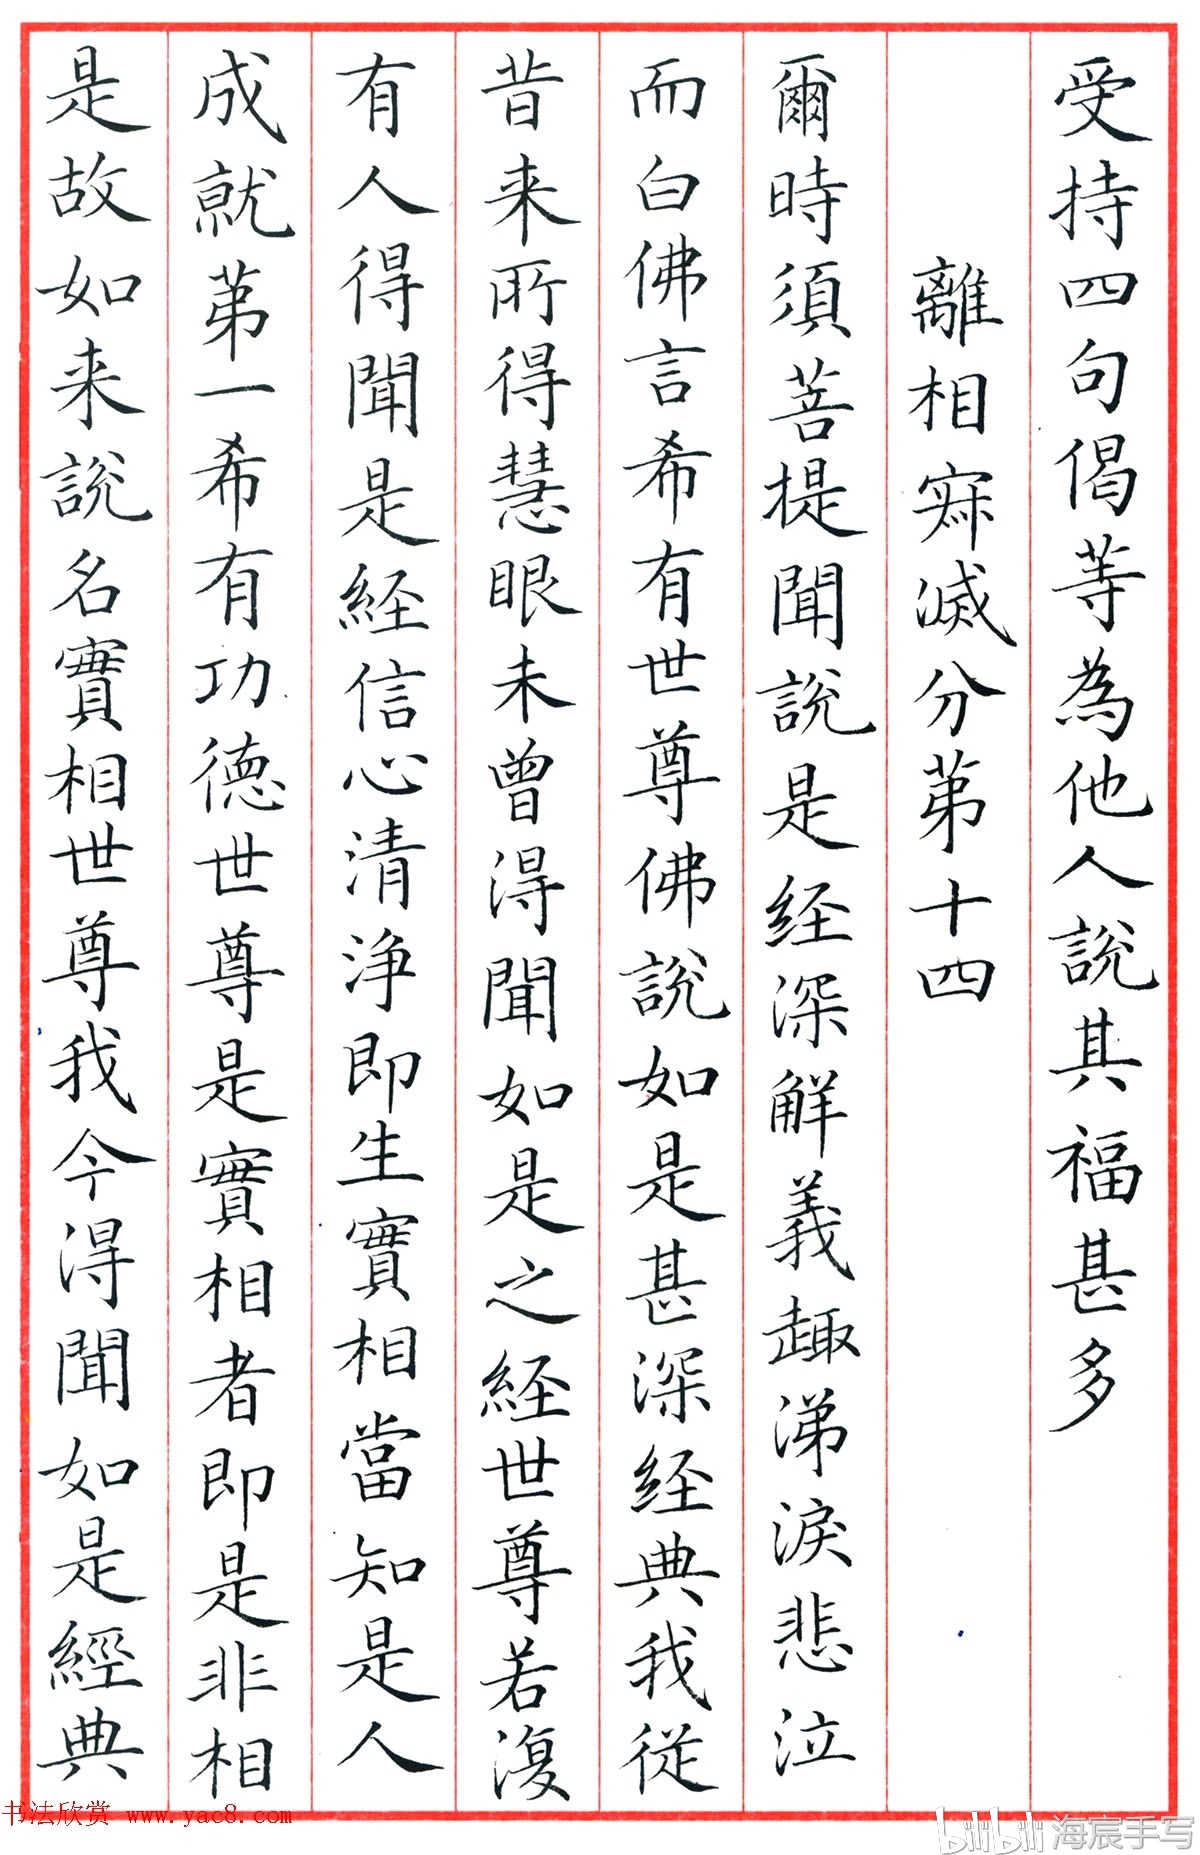 受持四句偈等為他人說其福甚多
離相寂滅分第十四
爾時須菩提聞說是经深解義趣涕淚悲泣
而白佛言希有世尊佛說如是甚深经典我從
昔来所得慧眼未曾得聞如是之経世尊若復
有人得聞是経信心清浄即生實相當知是人
成就第一希有功德世尊是實相者即是非相
是故如来說名實相世尊我今得聞如是經典
书法欣赏 www.yac8.com
bilibili 海宸手写